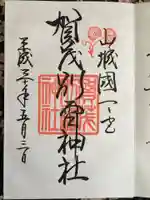 山城國一之宮
賀茂別雷神社
平成三十年五月三日